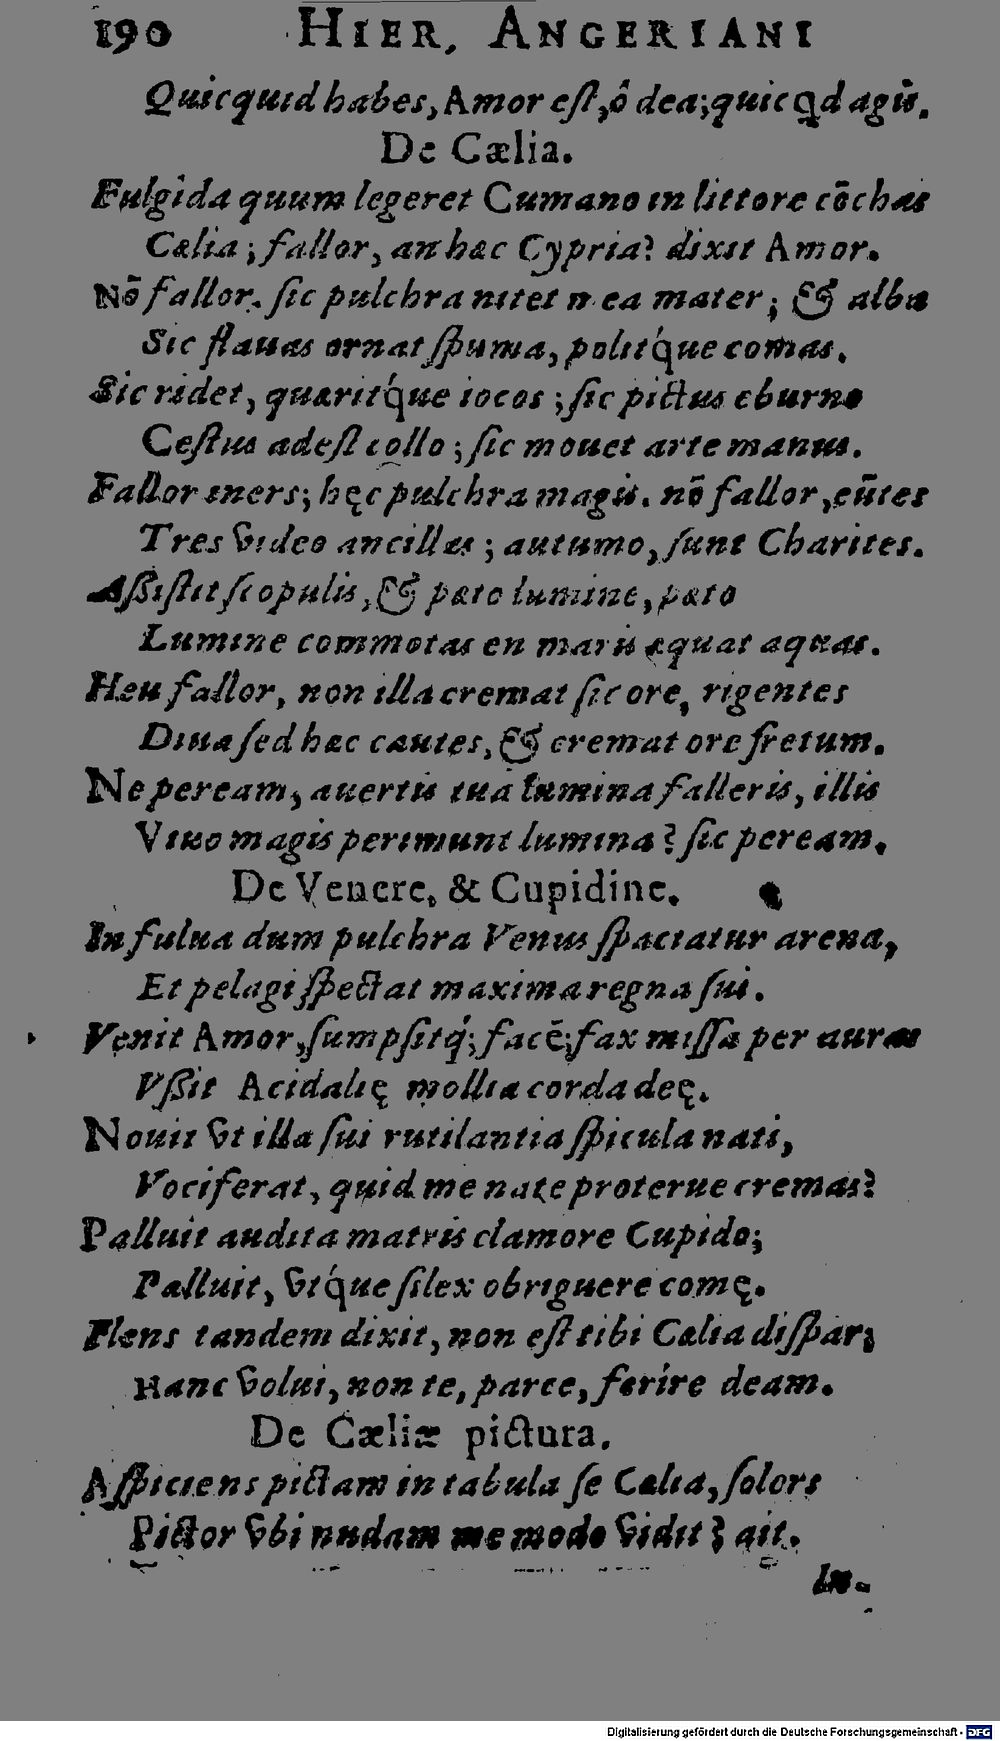 190 HIER. ANGERIANI
Quicquid habes, Amor est, ô dea; quicqd agis.
De Cælia.
Fulgida quum legeret Cumano in littore cōchas
Cælia; fallor, an hæc Cypria? dixit Amor.
Nō fallor. sic pulchra nitet mea mater; & alba
Sic flauas ornat spuma, politq́ue comas.
Sic ridet, quæritq́ue iocos; sic pictus eburno
Cestus adest collo; sic mouet arte manus.
Fallor iners; hęc pulchra magis. nō fallor, eūtes
Tres video ancillas; autumo, sunt Charites.
Aßistit scopulis, & pæto lumine, pæto
Lumine commotas en maris æquat aquas.
Heu fallor, non illa cremat sic ore, rigentes
Diua sed hæc cautes, & cremat ore fretum.
Ne peream, auertis tua lumina falleris, illis
Viuo magis perimunt lumina? sic peream.
De Venere, & Cupidine.
In fulua dum pulchra Venus spaciatur arena,
Et pelagi spectat maxima regna sui.
Venit Amor, sumpsitq́; facē; fax missa per auras
Vßit Acidalię mollia corda deę.
Nouit vt illa sui rutilantia spicula nati,
Vociferat, quid me nate proterue cremas?
Palluit audita matris clamore Cupido;
Palluit, vtq́ue silex obriguere comę.
Flens tandem dixit, non est tibi Cælia dispar;
Hanc volui, non te, parce, ferire deam.
De Cæliæ pictura.
Aspiciens pictam in tabula se Cælia, solers
Pictor vbi nudam me modo vidit? ait.
In-
Digitalisierung gefördert durch die Deutsche Forschungsgemeinschaft - DFG